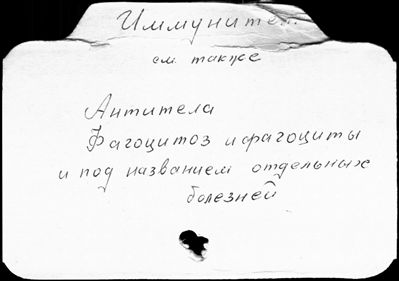 Иммунитет.
см. также
Антитела
Фагоцитоз и фагоциты
и под названием отдельных
болезней